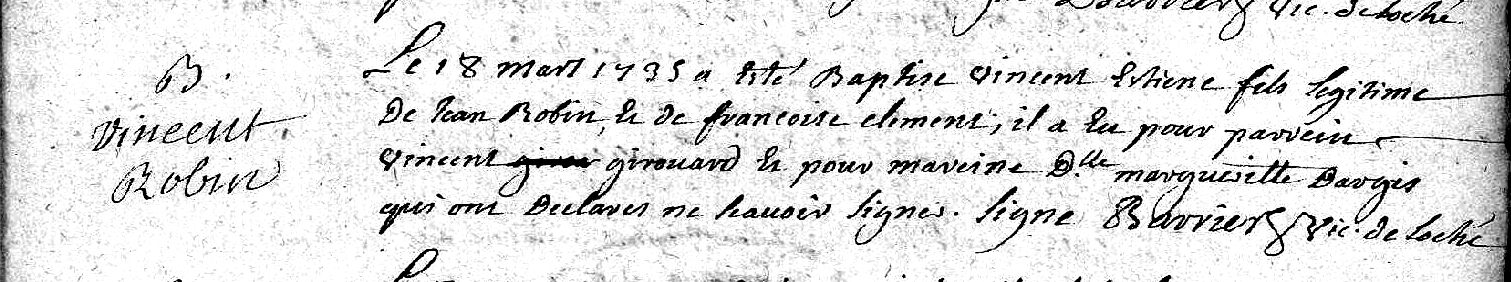 Barrier vic. de loché
B.
vincent
Robin
Le 18 mars 1735 a esté Baptise vincent Estiene fils legitime
De Jean Robin & de francoise clement, il a Eu pour parrein
vincent girouard & pour mareine D.lle marguerite Dargis
qui ont Declares ne scavoir signer. signe Barrier vic. de loché